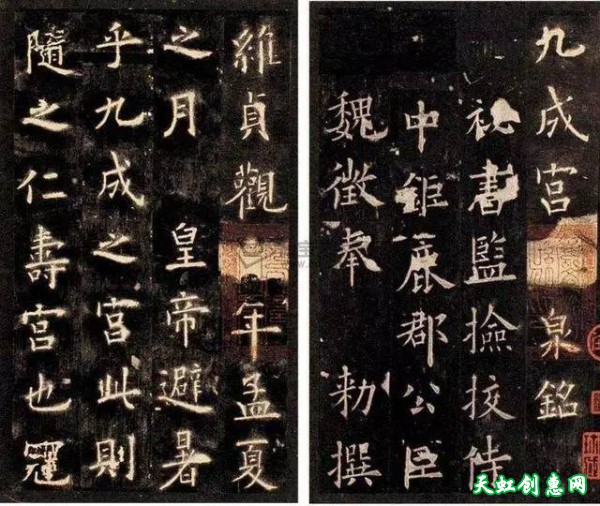 九成宮泉銘
祕書監撿挍侍
中鉅鹿郡公臣
魏徵奉 勑撰
維貞觀年孟夏
之月 皇帝避暑
乎九成之宮此則
隨之仁壽宮也冠
天虹创惠网